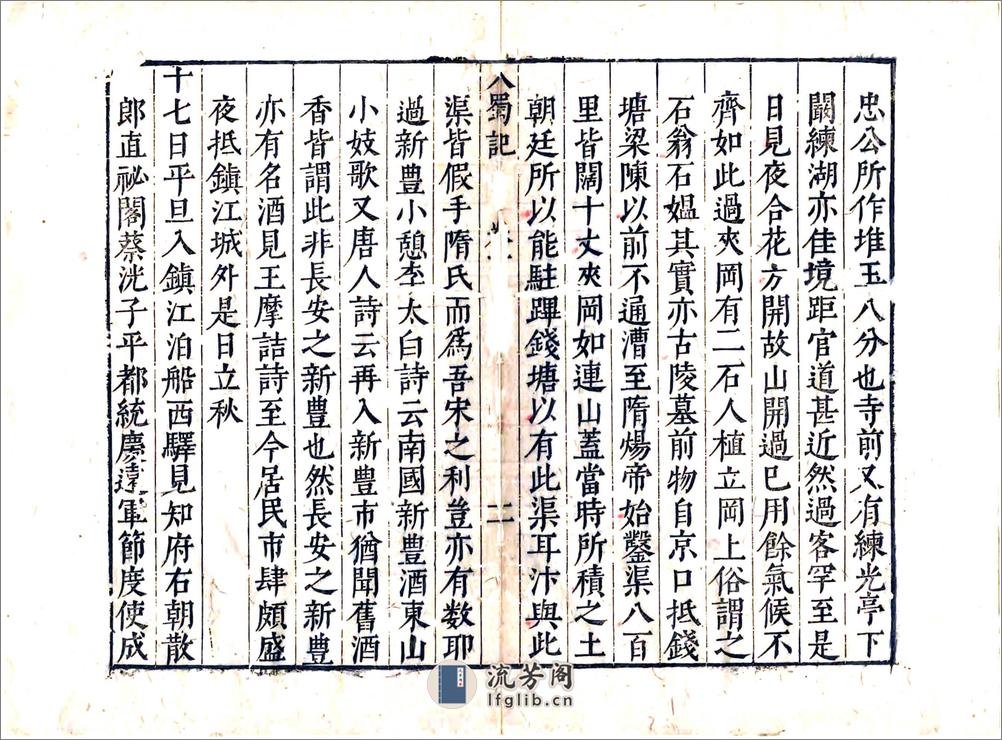 忠公所作堆玉八分也寺前又有練光亭下
闞練湖亦佳境距官道甚近然過客罕至是
日見夜合花方開故山開過已用餘氣候不
齊如此過夾岡有二石人植立岡上俗謂之
石翁石媪其實亦古陵墓前物自京口抵錢
塘梁陳以前不通漕至隋煬帝始鑿渠八百
里皆闊十丈夾岡如連山蓋當時所積之土
朝廷所以能駐蹕錢塘以有此渠耳汴與此
入蜀記
二
渠皆假手隋氏而為吾宋之利豈亦有数耶
過新豊小憩李太白詩云南國新豊酒東山
小妓歌又唐人詩云再入新豊市猶聞舊酒
香皆謂此非長安之新豊也然長安之新豊
亦有名酒見王摩詰詩至今居民市肆頗盛
夜抵鎮江城外是日立秋
十七日平旦入鎮江泊船西驛見知府右朝散
郎直祕閣蔡洸子平都統慶遠軍節度使成
流芳阁
lfglib.cn